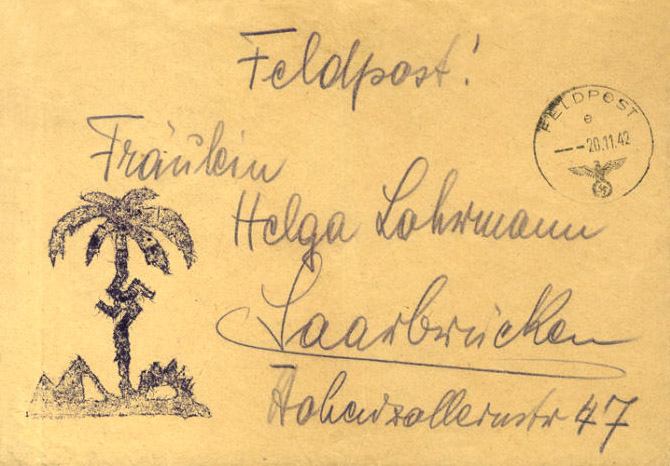 Feldpost!
FELDPOST
e
--20.11.42
Fräulein
Helga Lohrmann
Saarbrücken
Hohenzollernstr 47